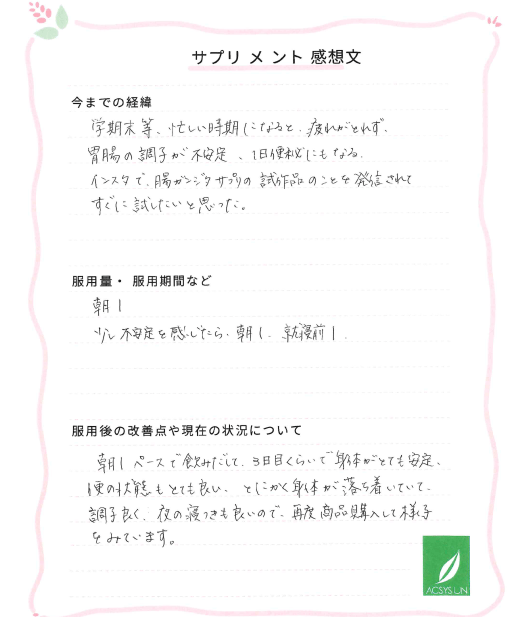 サプリメント感想文
今までの経緯
学期末等、忙しい時期になると、疲れがとれず、
胃腸の調子が不安定、1日便秘にもなる。
インスタで、腸カンジタサプリの試作品のことを発信されて
すぐに試したいと思った。
服用量・ 服用期間など
朝1
少し不安定を感じたら、朝1、就寝前1.
服用後の改善点や現在の状況について
朝1ペースで飲みだして、3日目くらいで身体がとても安定、
便の状態もとても良い、とにかく身体が落ち着いていて、
調子良く、夜の寝つきも良いので、再度商品購入して様子
をみています。
ACSYSUN